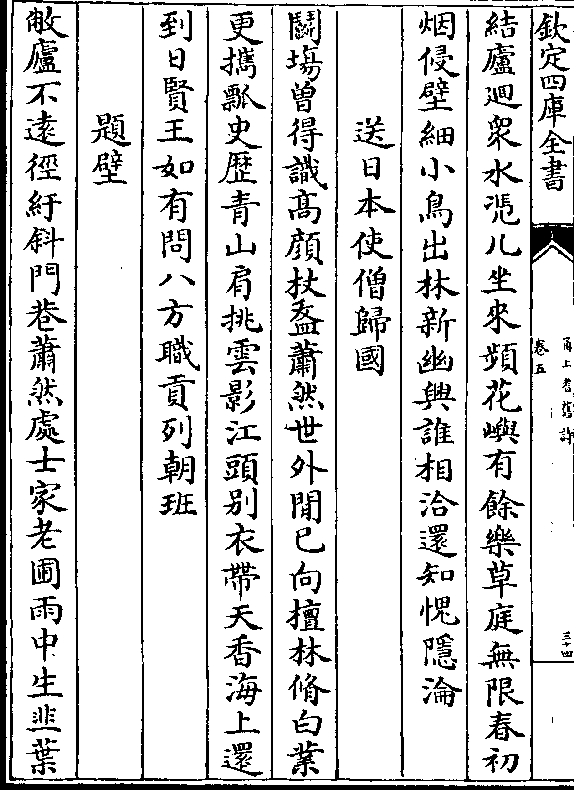 欽定四庫全書
甬上耆舊詩
卷五
三十四
結廬廻衆水凭几坐來頻花嶼有餘樂草庭無限春初
烟侵壁細小鳥出林新幽興誰相洽還知愧隱淪
送日本使僧歸國
鬭塲曽得識髙顔杖盔蕭然世外閒已向檀林脩白業
更擕瓢史歴青山肩挑雲影江頭别衣帶天香海上還
到日賢王如有問八方職貢列朝班
題壁
敝廬不逺徑紆斜門巷蕭然處士家老圃雨中生韭葉